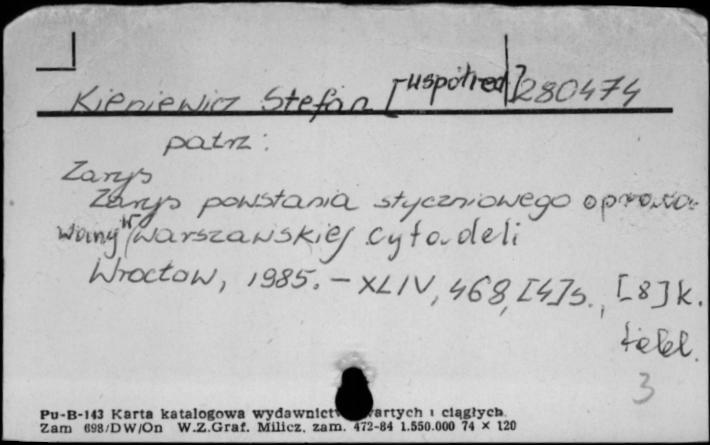 Kieniewicz Stefan [współred] 280474
patrz:
Zarys
Zarys powstania styczniowego opraco-
wany w warszawskiej cytadeli
Wrocław, 1985. – XLIV, 468, [4] s., [8] k.
tabl.
3
Pu-B-143 Karta katalogowa wydawnictw zwartych i ciągłych.
Zam 698/DW/On W.Z.Graf. Milicz, zam. 472-84 1.550.000 74 × 120